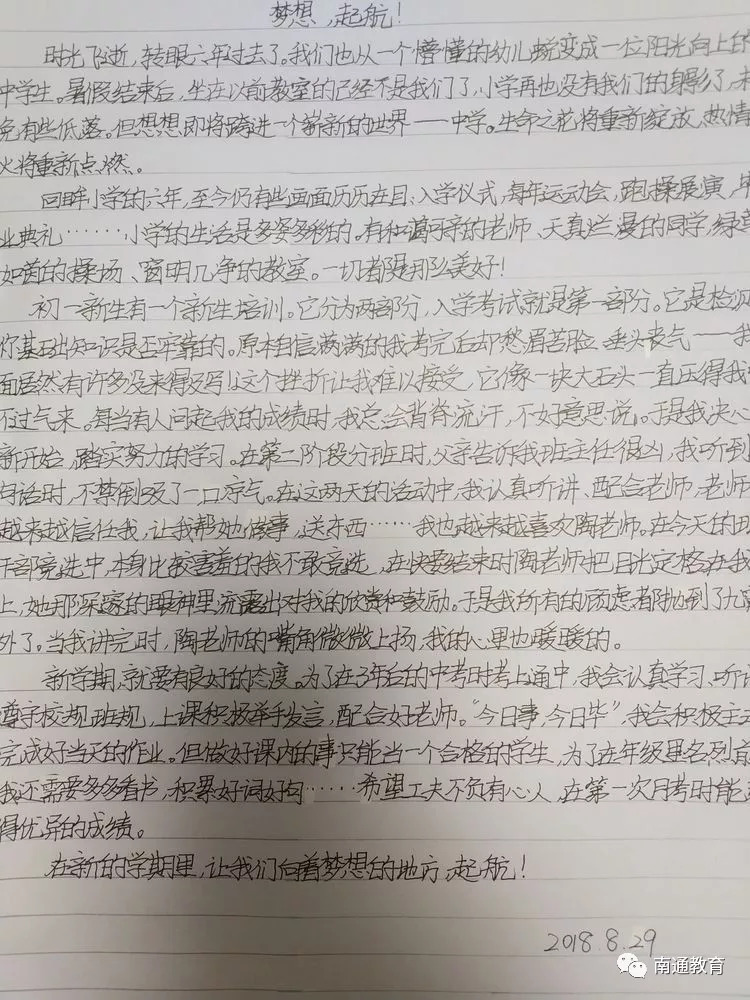 梦想，起航！
时光飞逝，转眼六年过去了。我们也从一个懵懂的幼儿蜕变成一位阳光向上的
中学生。暑假结束后，坐在以前教室的已经不是我们了，小学再也没有我们的身影了，
免有些低落。但想想即将跨进一个崭新的世界——中学。生命之花将重新绽放，热情
火将重新点燃。
回眸小学的六年，至今仍有些画面历历在目：入学仪式，每年运动会，跑操展演，毕
业典礼……小学的生活是多姿多彩的。有和蔼可亲的老师、天真烂漫的同学，绿草
如茵的操场、窗明几净的教室。一切都是那么美好！
初一新生有一个新生培训。它分为两部分，入学考试就是第一部分。它是检测
你基础知识是否牢靠的。原本自信满满的我考完后却愁眉苦脸、垂头丧气——我
面居然有许多没来得及写！这个挫折让我难以接受，它像一块大石头一直压得我
不过气来。每当有人问起我的成绩时，我总会背脊流汗，不好意思说。于是我决心
新开始，踏实努力的学习。在第二阶段分班时，父亲告诉我班主任很凶，我听到
句话时，不禁倒吸了一口凉气。在这两天的活动中，我认真听讲、配合老师，老师
越来越信任我，让我帮她做事，送东西……我也越来越喜欢陶老师。在今天的班
干部竞选中，本身比较害羞的我不敢竞选，在快要结束时陶老师把目光定格在我
上，她那深邃的眼神里流露出对我的欣赏和鼓励。于是我所有的顾虑都抛到了九霄
外了。当我讲完时，陶老师的嘴角微微上扬，我的心里也暖暖的。
新学期，就要有良好的态度。为了在3年后的中考时考上通中，我会认真学习、听讲
遵守校规班规，上课积极举手发言，配合好老师。“今日事，今日毕”，我会积极主
完成好当天的作业。但做好课内的事只能当一个合格的学生，为了在年级里名列前
我还需要多多看书，积累好词好句……希望工夫不负有心人，在第一次月考时能
得优异的成绩。
在新的学期里，让我们向着梦想的地方，起航！
2018.8.29
南通教育